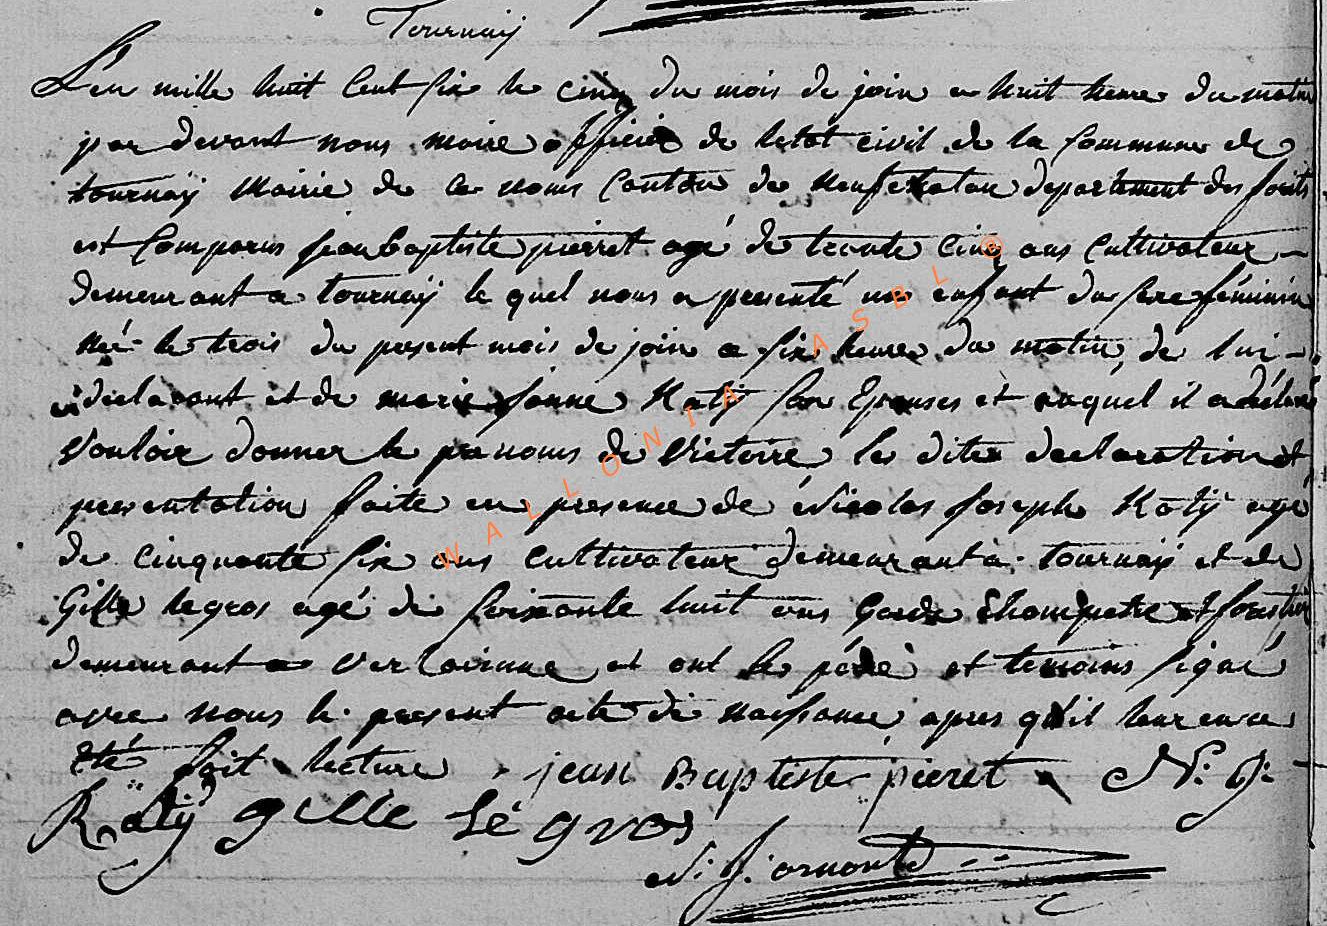 Tournaÿ
L'en mille huit Cent six le cinq du mois de join a huit heure du matin
par devant nous maire officié de letat civil de la Commune de
tournaÿ Mairie de ce noms Canton de neufchatau departement des forêts
est Comparus jean baptiste pierret agé de trente cinq ans Cultivateur
demeurant a tournaÿ le quel nous a presenté un enfant du sexe féminin
né le trois du present mois de join a six heure du matin, de lui
declarant et de marie jeanne Katÿ son Epouses et auquel il a déclaré
vouloir donner le prenoms de Victoire, les dites declaration et
presentation faite en presence de Nicolas joseph Katÿ agé
de cinquante six ans cultivateur demeurant a tournaÿ et de
Gille legros agé de soixante huit ans Garde Champetre et forestier
demeurant a Verlainne et ont les pére et témoins signé
avec nous le present acte de naissance, apres qu'il leur en a
été fait lecture jean Baptiste pieret N: J:
Katÿ gille Légros
N: J: ornont
WALLONIA ASBL ©